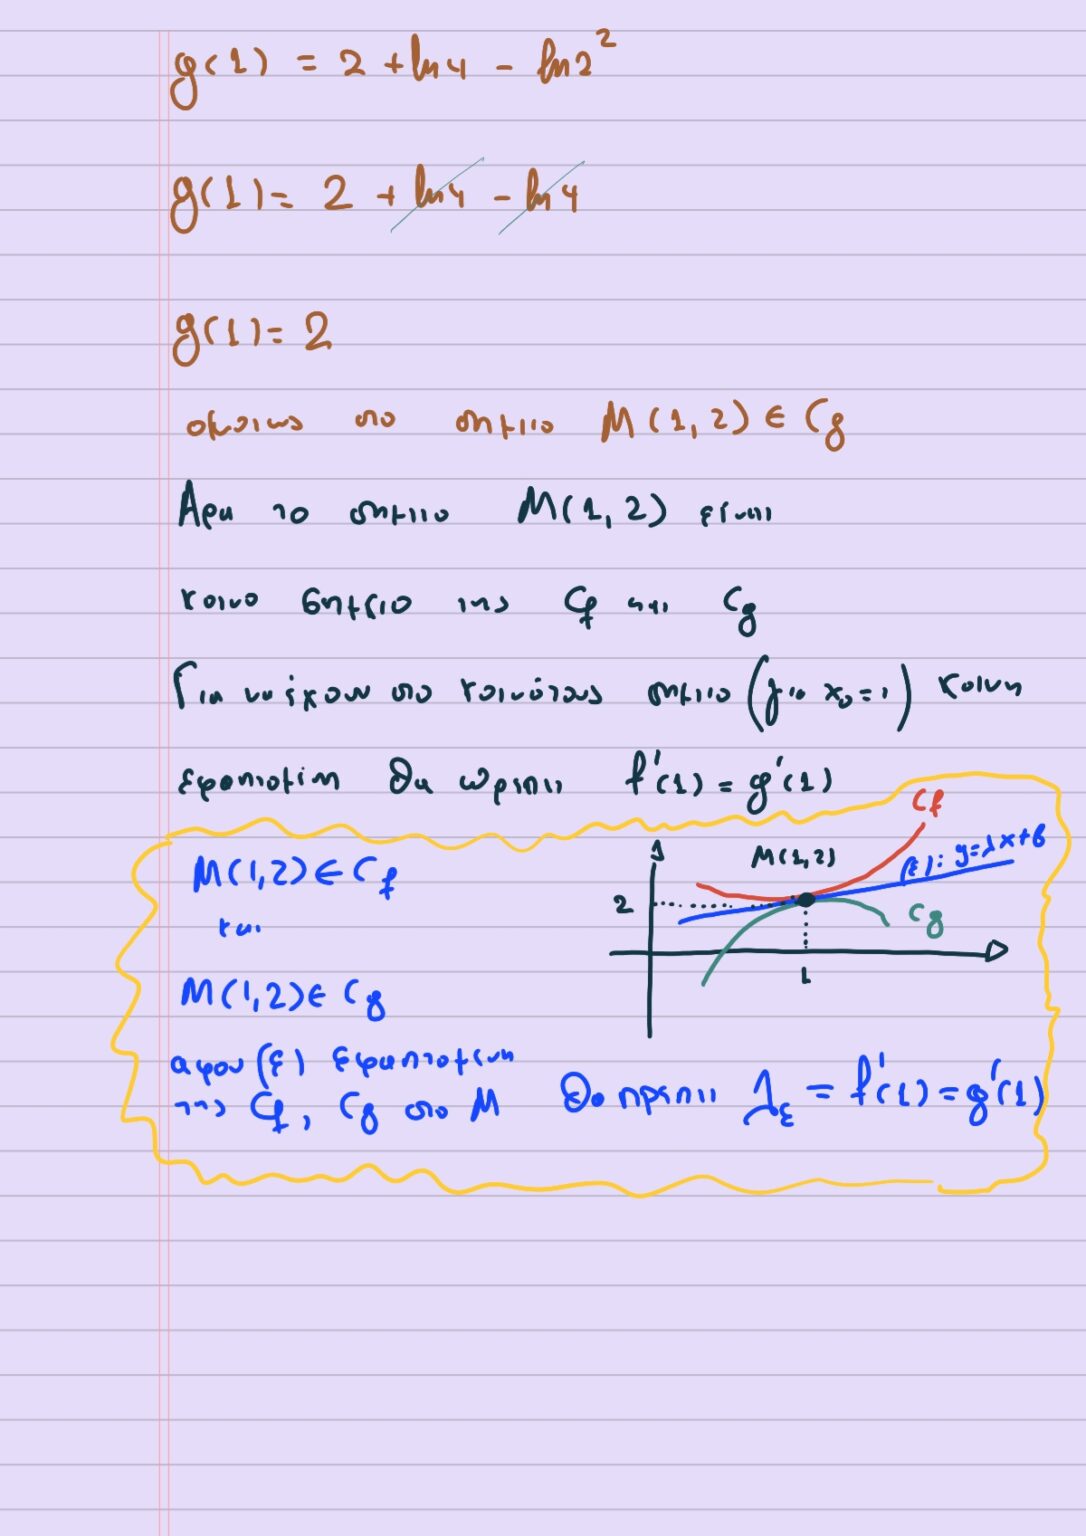 g(1) = 2 + ln4 - ln2²
g(1) = 2 + ln4 - ln4
g(1) = 2
ομοιως το σημειο M(1,2) ∈ Cg
Αρα το σημειο M(1,2) είναι
κοινο σημειο της Cf και Cg
Για να έχουν στο κοινό τους σημειο (για x₀=1) κοινη
εφαπτομενη θα πρεπει f'(1) = g'(1)
M(1,2) ∈ Cf
και
M(1,2) ∈ Cg
αφου (ε) εφαπτομενη
της Cf, Cg στο M Θα πρεπει λε = f'(1) = g'(1)
Cf
M(1,2)
(ε): y=λx+β
2
Cg
1